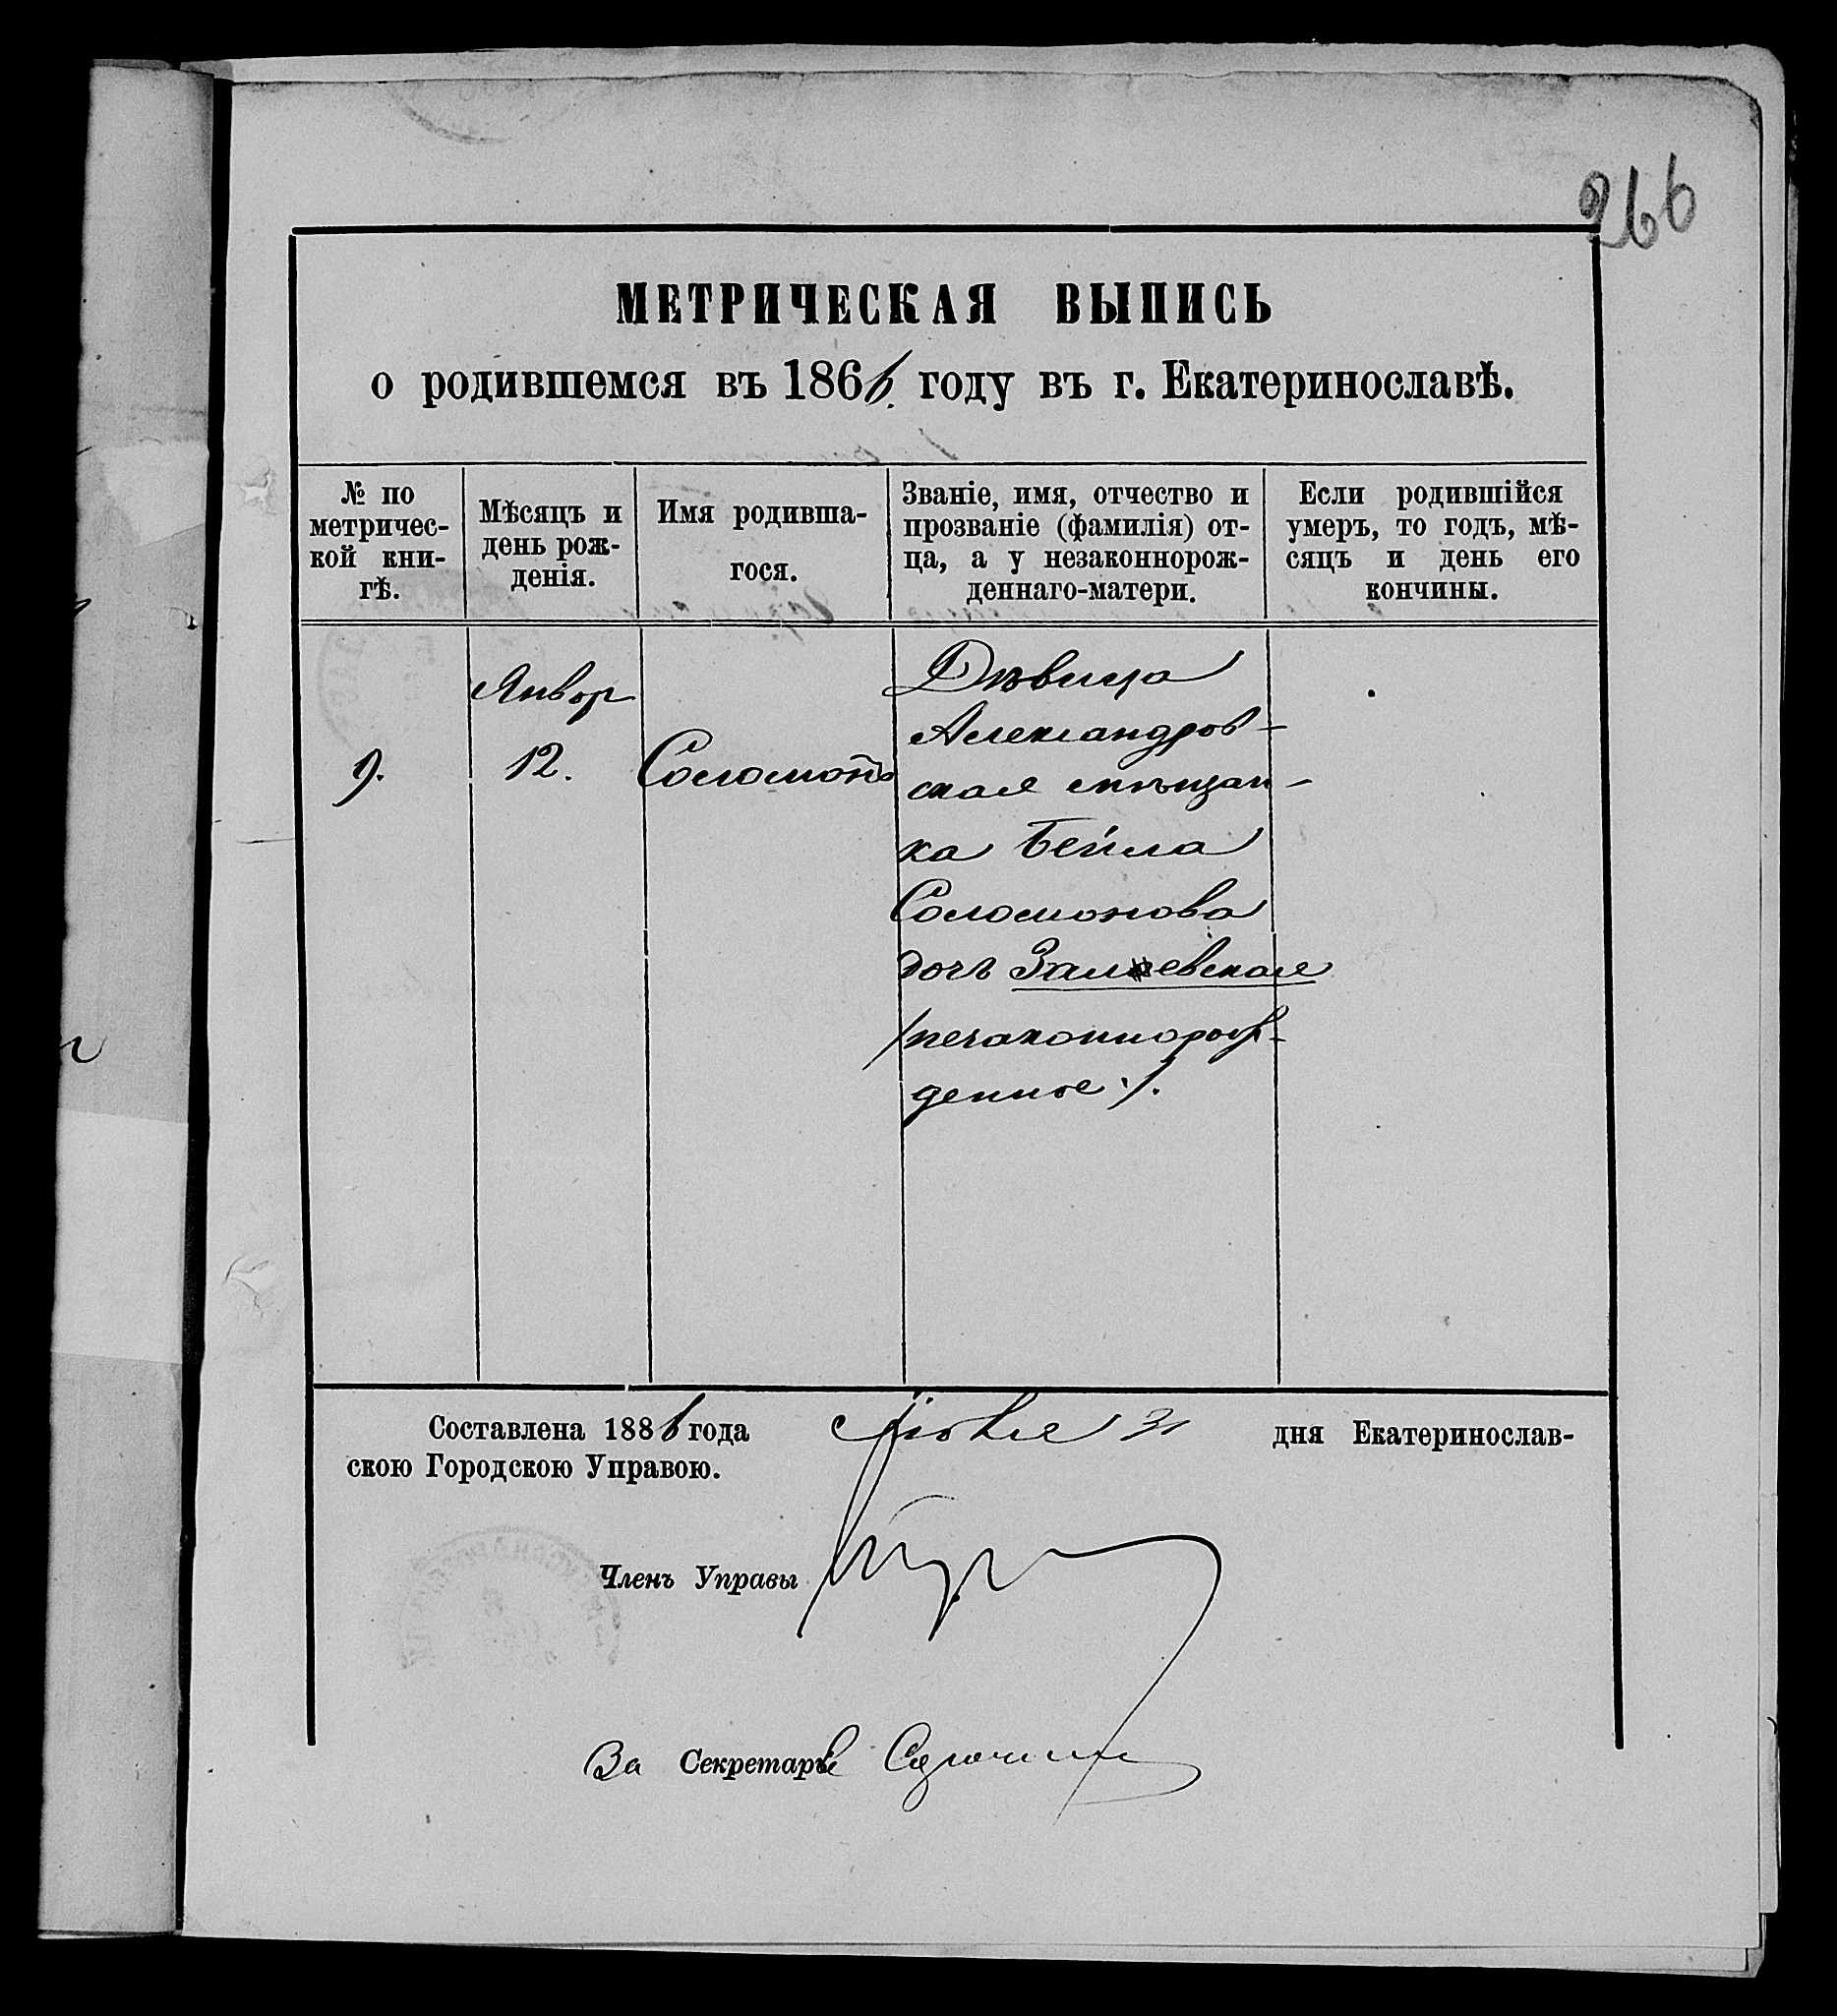 266
МЕТРИЧЕСКАЯ ВЫПИСЬ
о родившемся въ 1866 году въ г. Екатеринославѣ.
№ по
метричес-
кой кни-
гѣ.
Мѣсяцъ и
день рож-
денія.
Имя родивша-
гося.
Званіе, имя, отчество и
прозваніе (фамилія) от-
ца, а у незаконнорож-
деннаго-матери.
Если родившійся
умеръ, то годъ, мѣ-
сяцъ и день его
кончины.
9.
Январ
12.
Соломонъ
Дѣвица
Александров-
ская мѣщан-
ка Бейла
Соломонова
дочь
/незаконнорож-
денное/.
Составлена 1886 года Іюля 31 дня Екатеринослав-
скою Городскою Управою.
Членъ Управы
За Секретаря